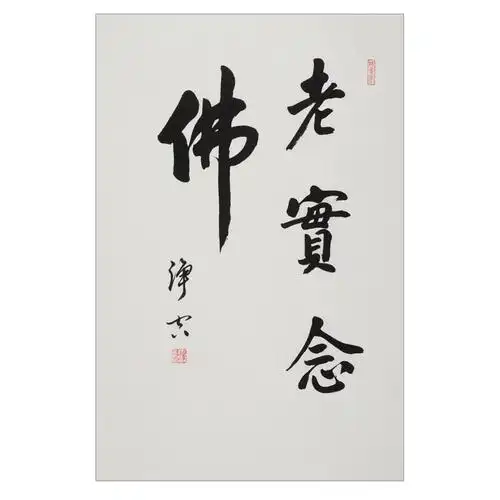 老實念
佛
淨空